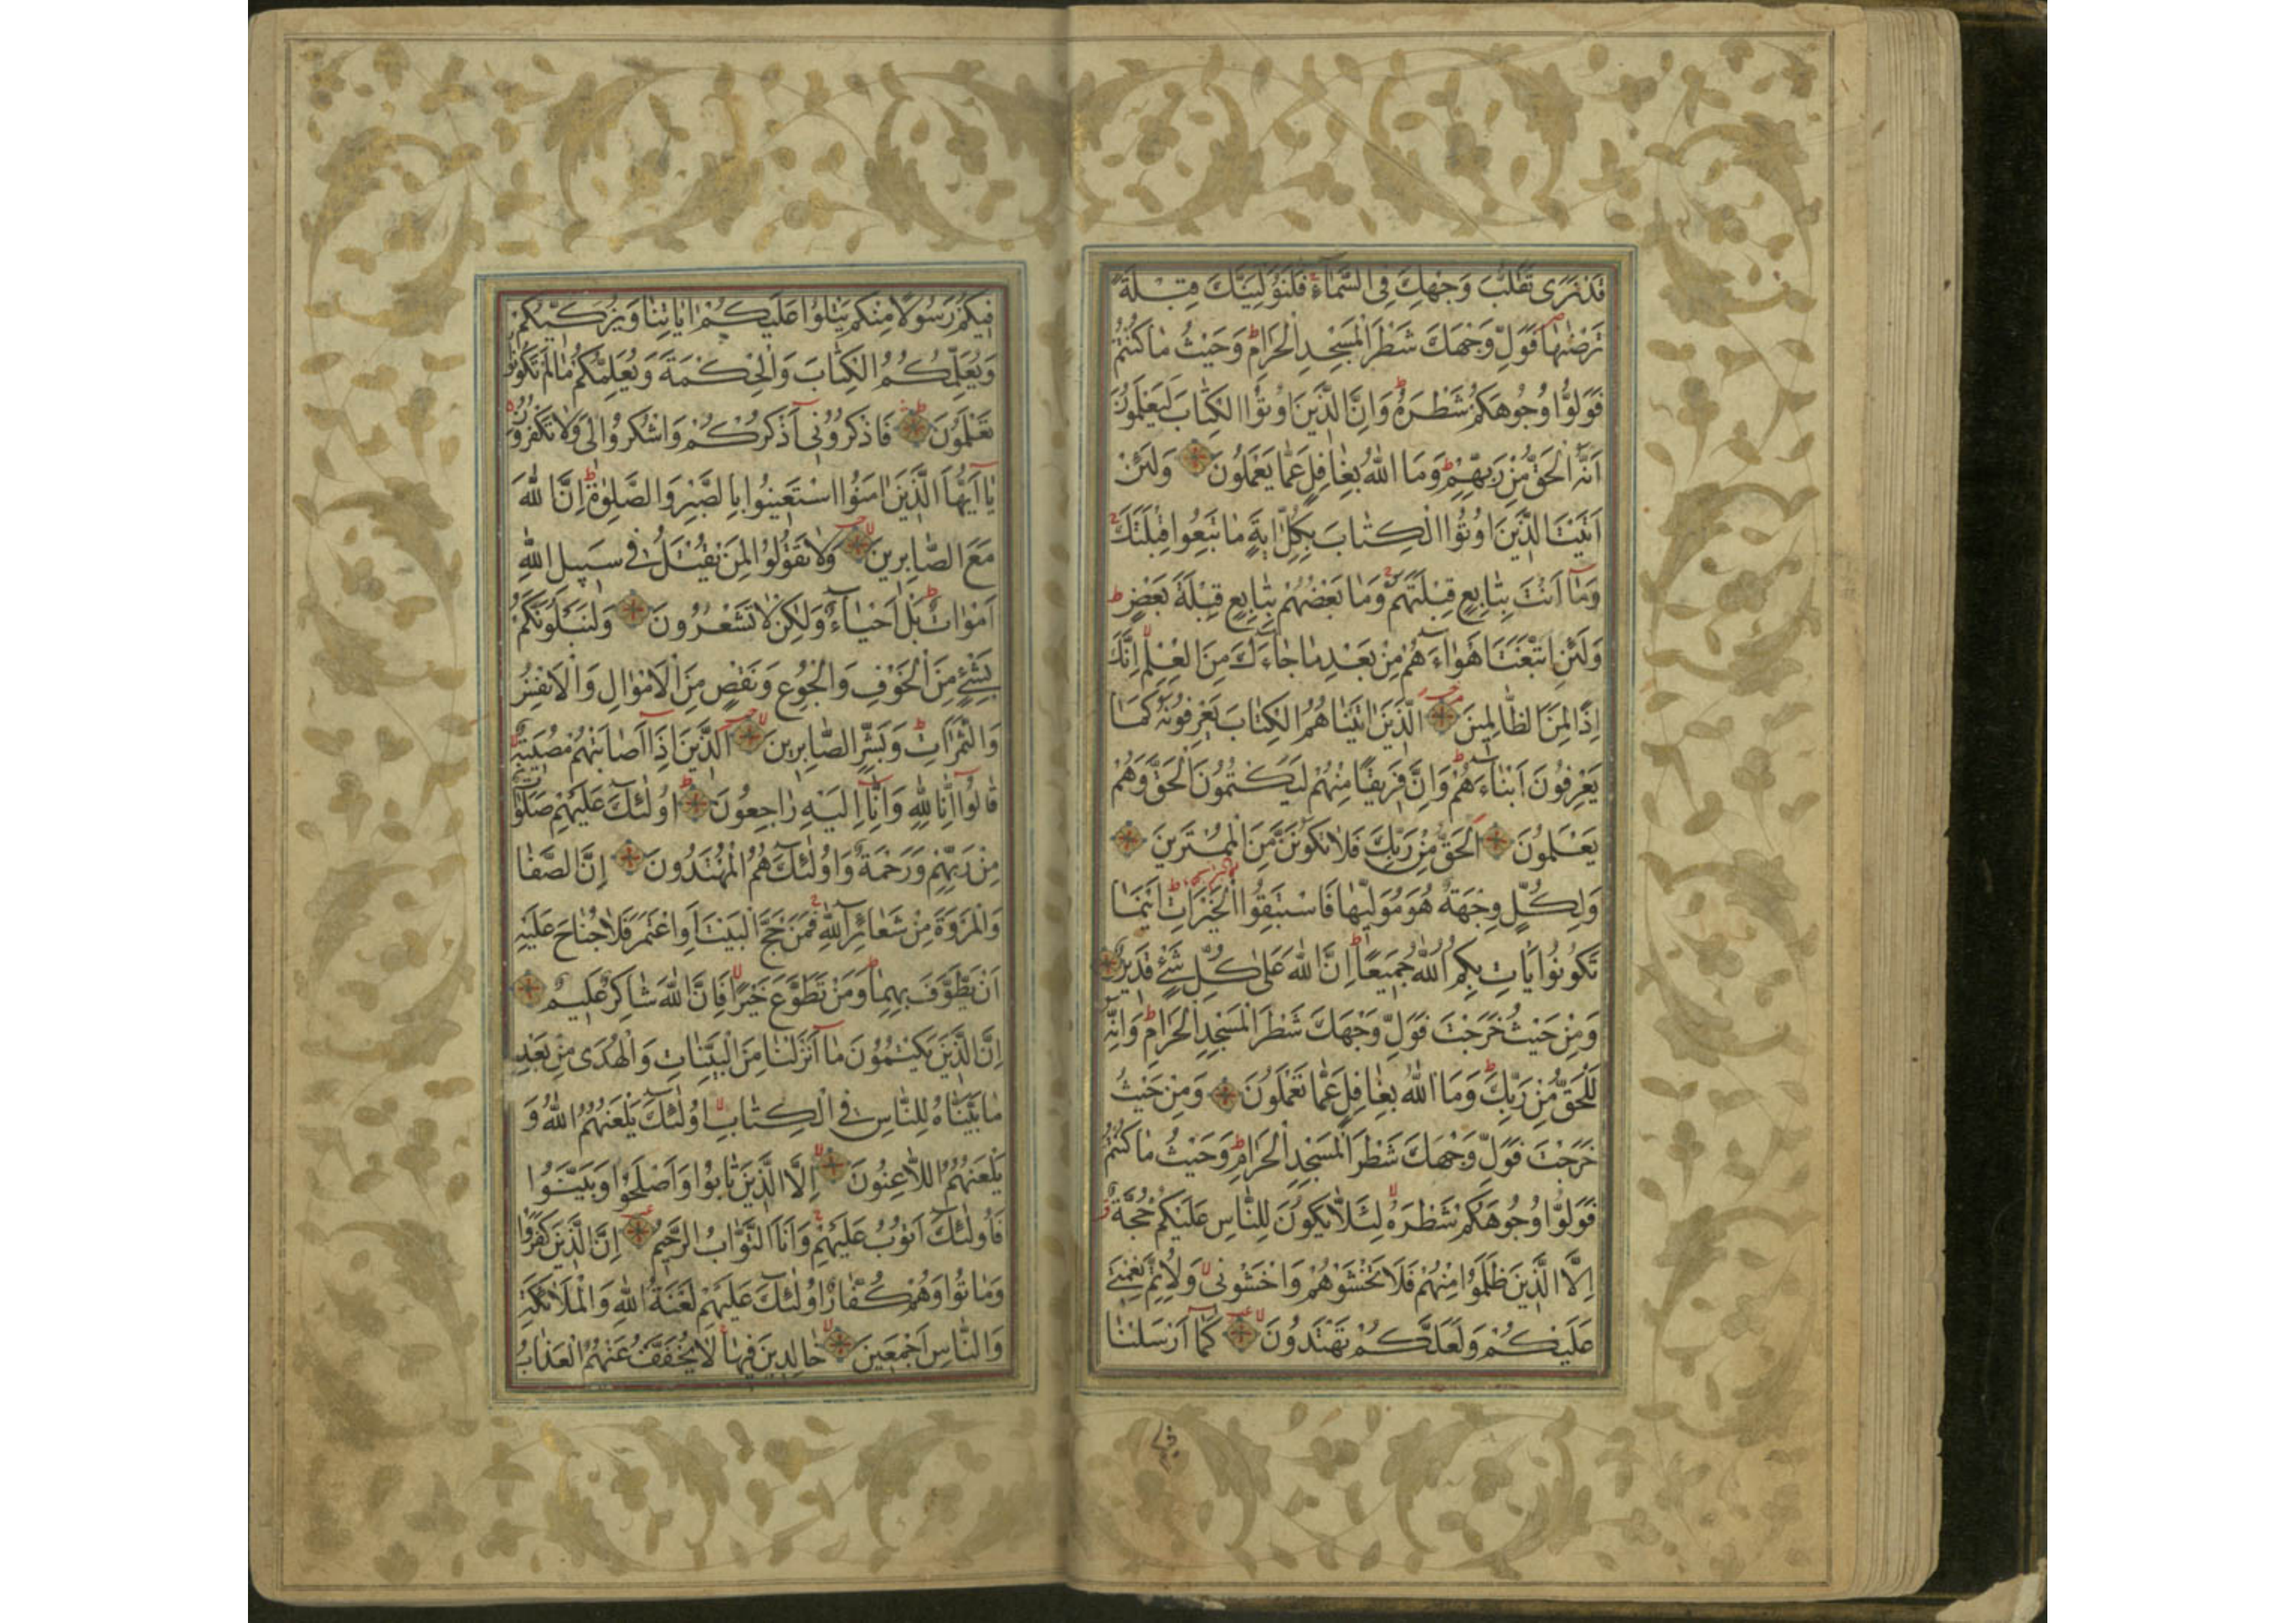 قَدْ نَرٰى تَقَلُّبَ وَجْهِكَ فِى السَّمَاءِ فَلَنُوَلِّيَنَّكَ قِبْلَةً
تَرْضٰىهَا فَوَلِّ وَجْهَكَ شَطْرَ الْمَسْجِدِ الْحَرَامِ وَحَيْثُ مَا كُنْتُمْ
فَوَلُّوا وُجُوهَكُمْ شَطْرَهُ وَاِنَّ الَّذِينَ اُوتُوا الْكِتَابَ لَيَعْلَمُونَ
اَنَّهُ الْحَقُّ مِنْ رَبِّهِمْ وَمَا اللّٰهُ بِغَافِلٍ عَمَّا يَعْمَلُونَ وَلَئِنْ
اَتَيْتَ الَّذِينَ اُوتُوا الْكِتَابَ بِكُلِّ اٰيَةٍ مَا تَبِعُوا قِبْلَتَكَ
وَمَا اَنْتَ بِتَابِعٍ قِبْلَتَهُمْ وَمَا بَعْضُهُمْ بِتَابِعٍ قِبْلَةَ بَعْضٍ
وَلَئِنِ اتَّبَعْتَ اَهْوَاءَهُمْ مِنْ بَعْدِ مَا جَاءَكَ مِنَ الْعِلْمِ اِنَّكَ
اِذًا لَمِنَ الظَّالِمِينَ اَلَّذِينَ اٰتَيْنَاهُمُ الْكِتَابَ يَعْرِفُونَهُ كَمَا
يَعْرِفُونَ اَبْنَاءَهُمْ وَاِنَّ فَرِيقًا مِنْهُمْ لَيَكْتُمُونَ الْحَقَّ وَهُمْ
يَعْلَمُونَ اَلْحَقُّ مِنْ رَبِّكَ فَلَا تَكُونَنَّ مِنَ الْمُمْتَرِينَ
وَلِكُلٍّ وِجْهَةٌ هُوَ مُوَلِّيهَا فَاسْتَبِقُوا الْخَيْرَاتِ اَيْنَمَا
تَكُونُوا يَاْتِ بِكُمُ اللّٰهُ جَمِيعًا اِنَّ اللّٰهَ عَلٰى كُلِّ شَىْءٍ قَدِيرٌ
وَمِنْ حَيْثُ خَرَجْتَ فَوَلِّ وَجْهَكَ شَطْرَ الْمَسْجِدِ الْحَرَامِ وَاِنَّهُ
لَلْحَقُّ مِنْ رَبِّكَ وَمَا اللّٰهُ بِغَافِلٍ عَمَّا تَعْمَلُونَ وَمِنْ حَيْثُ
خَرَجْتَ فَوَلِّ وَجْهَكَ شَطْرَ الْمَسْجِدِ الْحَرَامِ وَحَيْثُ مَا كُنْتُمْ
فَوَلُّوا وُجُوهَكُمْ شَطْرَهُ لِئَلَّا يَكُونَ لِلنَّاسِ عَلَيْكُمْ حُجَّةٌ
اِلَّا الَّذِينَ ظَلَمُوا مِنْهُمْ فَلَا تَخْشَوْهُمْ وَاخْشَوْنِى وَلِاُتِمَّ نِعْمَتِى
عَلَيْكُمْ وَلَعَلَّكُمْ تَهْتَدُونَ كَمَا اَرْسَلْنَا
فيكم
فِيكُمْ رَسُولًا مِنْكُمْ يَتْلُوا عَلَيْكُمْ اٰيَاتِنَا وَيُزَكِّيكُمْ
وَيُعَلِّمُكُمُ الْكِتَابَ وَالْحِكْمَةَ وَيُعَلِّمُكُمْ مَا لَمْ تَكُونُوا
تَعْلَمُونَ فَاذْكُرُونِى اَذْكُرْكُمْ وَاشْكُرُوا لِى وَلَا تَكْفُرُونِ
يَا اَيُّهَا الَّذِينَ اٰمَنُوا اسْتَعِينُوا بِالصَّبْرِ وَالصَّلٰوةِ اِنَّ اللّٰهَ
مَعَ الصَّابِرِينَ وَلَا تَقُولُوا لِمَنْ يُقْتَلُ فِى سَبِيلِ اللّٰهِ
اَمْوَاتٌ بَلْ اَحْيَاءٌ وَلٰكِنْ لَا تَشْعُرُونَ وَلَنَبْلُوَنَّكُمْ
بِشَىْءٍ مِنَ الْخَوْفِ وَالْجُوعِ وَنَقْصٍ مِنَ الْاَمْوَالِ وَالْاَنْفُسِ
وَالثَّمَرَاتِ وَبَشِّرِ الصَّابِرِينَ اَلَّذِينَ اِذَا اَصَابَتْهُمْ مُصِيبَةٌ
قَالُوا اِنَّا لِلّٰهِ وَاِنَّا اِلَيْهِ رَاجِعُونَ اُولٰئِكَ عَلَيْهِمْ صَلَوَاتٌ
مِنْ رَبِّهِمْ وَرَحْمَةٌ وَاُولٰئِكَ هُمُ الْمُهْتَدُونَ اِنَّ الصَّفَا
وَالْمَرْوَةَ مِنْ شَعَائِرِ اللّٰهِ فَمَنْ حَجَّ الْبَيْتَ اَوِ اعْتَمَرَ فَلَا جُنَاحَ عَلَيْهِ
اَنْ يَطَّوَّفَ بِهِمَا وَمَنْ تَطَوَّعَ خَيْرًا فَاِنَّ اللّٰهَ شَاكِرٌ عَلِيمٌ
اِنَّ الَّذِينَ يَكْتُمُونَ مَا اَنْزَلْنَا مِنَ الْبَيِّنَاتِ وَالْهُدٰى مِنْ بَعْدِ
مَا بَيَّنَّاهُ لِلنَّاسِ فِى الْكِتَابِ اُولٰئِكَ يَلْعَنُهُمُ اللّٰهُ وَ
يَلْعَنُهُمُ اللَّاعِنُونَ اِلَّا الَّذِينَ تَابُوا وَاَصْلَحُوا وَبَيَّنُوا
فَاُولٰئِكَ اَتُوبُ عَلَيْهِمْ وَاَنَا التَّوَّابُ الرَّحِيمُ اِنَّ الَّذِينَ كَفَرُوا
وَمَاتُوا وَهُمْ كُفَّارٌ اُولٰئِكَ عَلَيْهِمْ لَعْنَةُ اللّٰهِ وَالْمَلَائِكَةِ
وَالنَّاسِ اَجْمَعِينَ خَالِدِينَ فِيهَا لَا يُخَفَّفُ عَنْهُمُ الْعَذَابُ